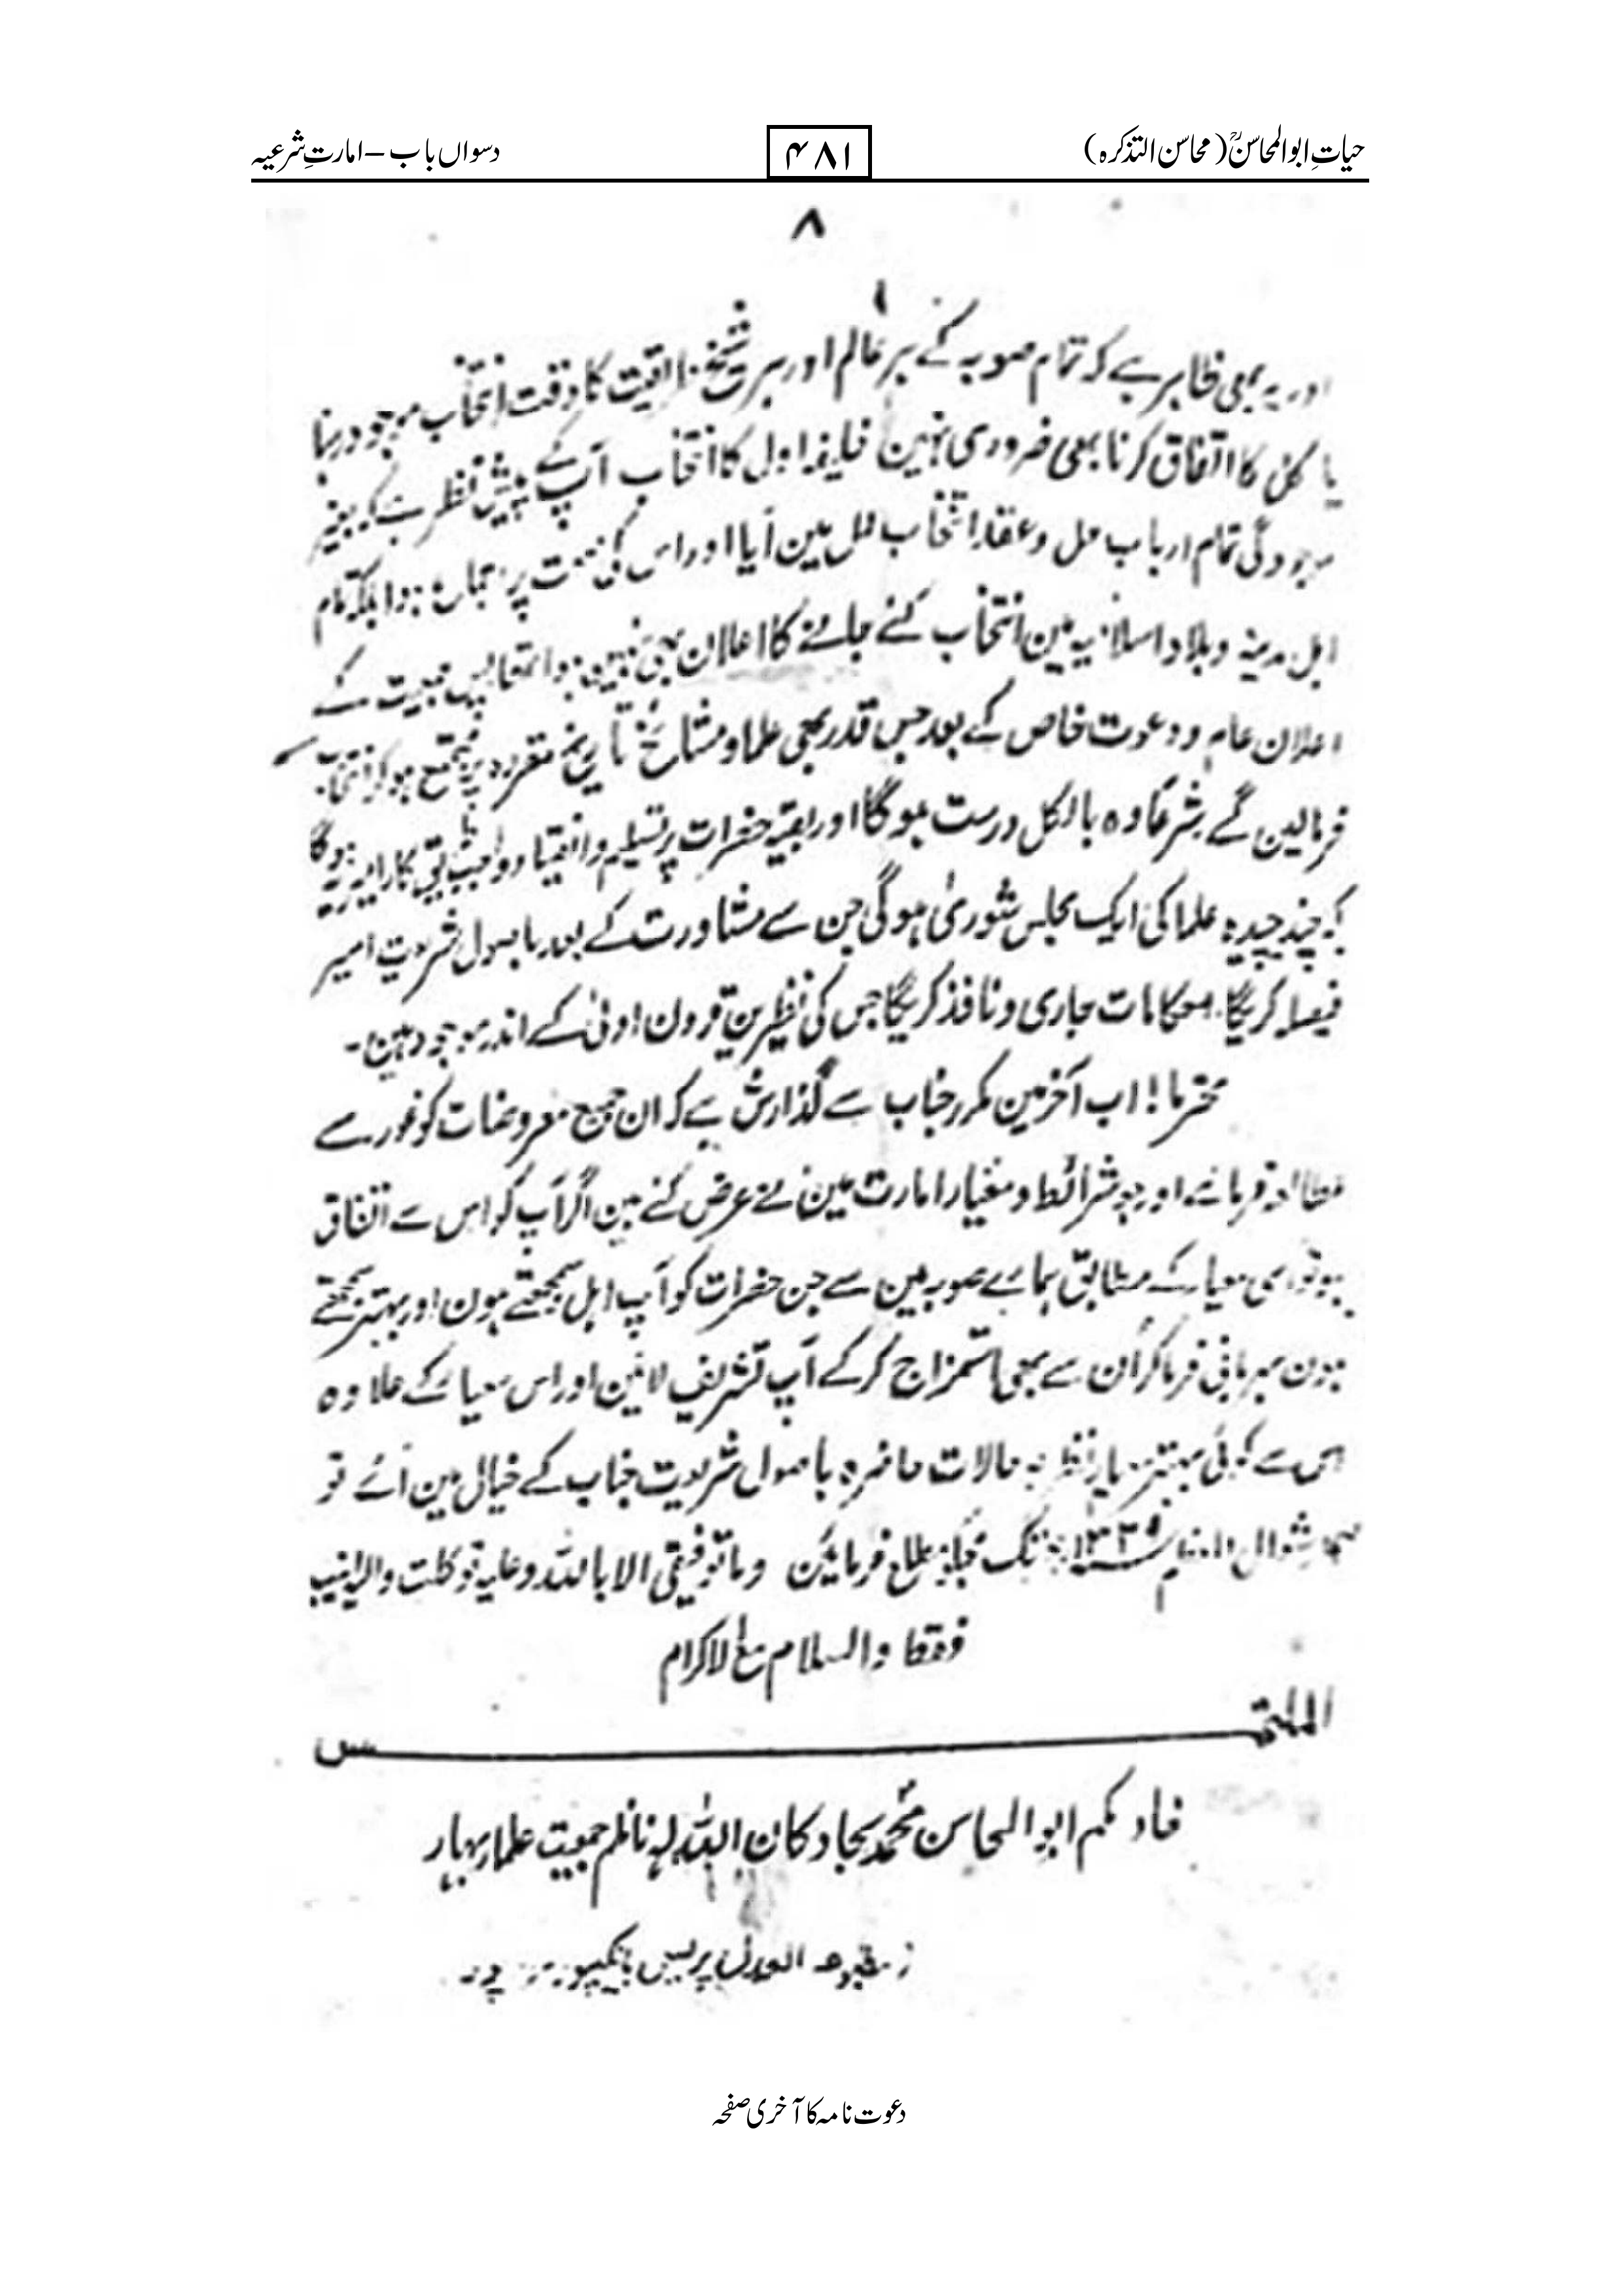 حیاتِ ابوالمحاسنؒ (محاسن التذکرہ) ۴۸۱ دسواں باب – امارتِ شرعیہ
۸
اور یہ بھی ظاہر ہے کہ تمام صوبہ کے ہر عالم اور ہر شیخ طریقت کا وقت انتخاب موجود رہنا
یا کل کا اتفاق کرنا بھی ضروری نہین خلیفہ اول کا انتخاب آپ کے پیش نظر ہے کہ بغیر
موجودگی تمام ارباب حل و عقد انتخاب عمل مین آیا اور اس کی پر بلکہ تمام
اہل مدینہ و بلاد اسلامیہ مین انتخاب کئے جانے کا اعلان بھی نہین ہوا تھا پس جمعیت کے
اعلان عام و دعوت خاص کے بعد جس قدر بھی علما و مشائخ تاریخ مقررہ پر مجتمع ہو کر انتخاب
فرمالین گے شرعاً وہ بالکل درست ہوگا اور بقیہ حضرات پر تسلیم و انقیاد واجب باقی کار امیر یہ ہوگا
کہ چند چیدہ علما کی ایک مجلس شوریٰ ہوگی جن سے مشاورت کے بعد باصول شریعت امیر
فیصلہ کریگا احکامات جاری و نافذ کریگا جس کی نظیرین قرون اولیٰ کے اندر موجود ہین۔
محترما! اب آخر مین مکرر جناب سے گذارش ہے کہ ان جمیع معروضات کو غور سے
مطالعہ فرمائے اور جو شرائط و معیار امارت مین نے عرض کئے ہین اگر آپ کو اس سے اتفاق
ہو تو اسی معیار کے مطابق ہمارے صوبہ مین سے جن حضرات کو آپ اہل سمجھتے ہون اور بہتر سمجھتے
ہون مہربانی فرماکر ان سے بھی استمزاج کرکے آپ تشریف لائین اور اس معیار کے علاوہ
اس سے کوئی بہتر معیار نظر بہ حالات حاضرہ باصول شریعت جناب کے خیال مین آئے تو
شوال ۱۳۳۹ تک مجھکو مطلع فرمائین وما توفیقی الا باللہ وعلیہ توکلت والیہ انیب
فقط والسلام مع الاکرام
الملتمس
خادمکم ابو المحاسن محمد سجاد کان اللہ لہ ناظم جمعیت علماء بہار
پریس بانکیپور
دعوت نامہ کا آخری صفحہ